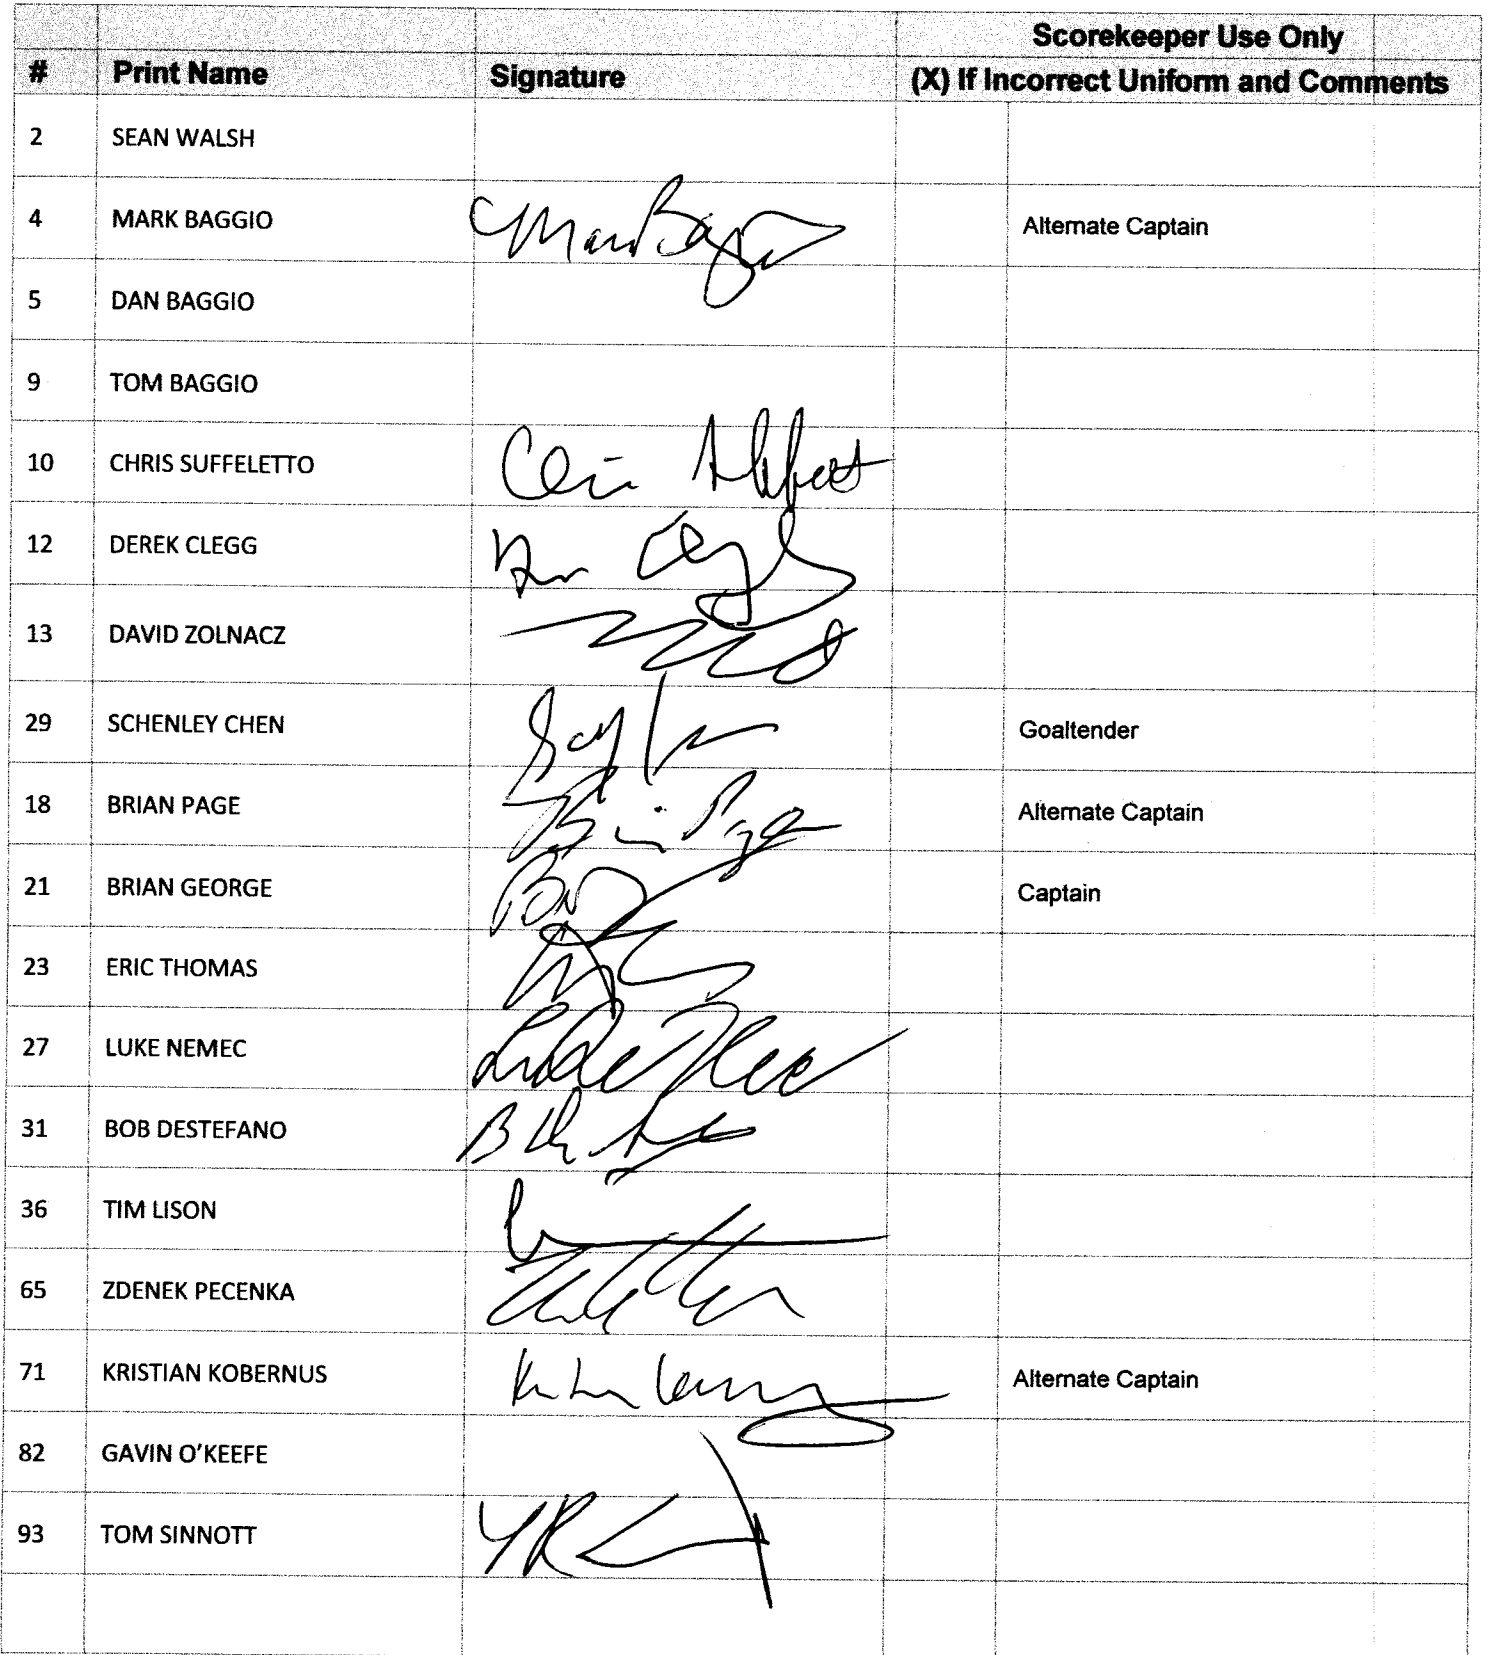 Scorekeeper Use Only
# Print Name Signature (X) If Incorrect Uniform and Comments
2 SEAN WALSH
4 MARK BAGGIO Mark Baggio Alternate Captain
5 DAN BAGGIO
9 TOM BAGGIO
10 CHRIS SUFFELETTO
12 DEREK CLEGG
13 DAVID ZOLNACZ
29 SCHENLEY CHEN Goaltender
18 BRIAN PAGE Brian Page Alternate Captain
21 BRIAN GEORGE Captain
23 ERIC THOMAS
27 LUKE NEMEC
31 BOB DESTEFANO
36 TIM LISON
65 ZDENEK PECENKA
71 KRISTIAN KOBERNUS Alternate Captain
82 GAVIN O'KEEFE
93 TOM SINNOTT